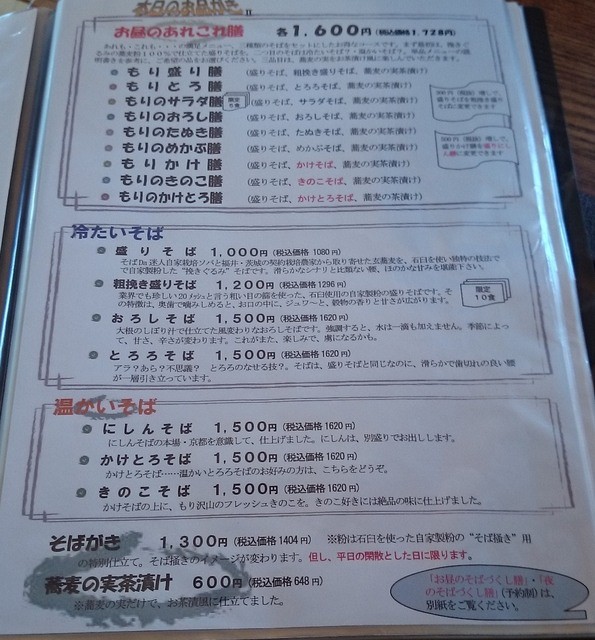 本日のお品がき II
お昼のあれこれ膳 各1,600円(税込価格1,728円)
もり盛り膳 (盛りそば、粗挽き盛りそば、蕎麦の実茶漬け)
もりとろ膳 (盛りそば、とろろそば、蕎麦の実茶漬け)
もりのサラダ膳 限定5食 (盛りそば、サラダそば、蕎麦の実茶漬け)
もりのおろし膳 (盛りそば、おろしそば、蕎麦の実茶漬け)
もりのたぬき膳 (盛りそば、たぬきそば、蕎麦の実茶漬け)
もりのめかぶ膳 (盛りそば、めかぶそば、蕎麦の実茶漬け)
もりかけ膳 (盛りそば、かけそば、蕎麦の実茶漬け)
もりのきのこ膳 (盛りそば、きのこそば、蕎麦の実茶漬け)
もりのかけとろ膳 (盛りそば、かけとろそば、蕎麦の茶漬け)
冷たいそば
盛りそば 1,000円(税込価格 1080円)
そばDa迷人自家栽培ソバと福井・茨城の契約栽培農家から取り寄せた玄蕎麦を、石臼を使い独特の技法で
で自家製粉した“挽きぐるみ”そばです。滑らかなシナリと比類ない腰、ほのかな甘みを堪能下さい。
粗挽き盛りそば 1,200円(税込価格1296円)
業界でも珍しい20メッシュと言う粗い目の篩を使った、石臼使用の自家製粉の盛りそばです。そ
の特徴は、奥歯で噛みしめると、お口の中に、ジュワ～と、穀物の香りと甘さが広がります。
限定
10食
おろしそば 1,500円(税込価格1620円)
大根のしぼり汁で仕立てた風変わりなおろしそばです。強調すると、水は一滴も加えません。季節によっ
て、甘さ、辛さが変わります。これがまた、楽しみで、虜になるかも。
とろろそば 1,500円(税込価格1620円)
アラ？あら？不思議？ とろろのなせる技？。そばは、盛りそばと同じなのに、滑らかで歯切れの良い腰
が一層引き立っています。
温かいそば
にしんそば 1,500円(税込価格 1620円)
にしんそばの本場・京都を意識して、仕上げました。にしんは、別盛りでお出しします。
かけとろそば 1,500円(税込価格 1620円)
かけとろそば……温かいとろろそばのお好みの方は、こちらをどうぞ。
きのこそば 1,500円(税込価格1620円)
かけそばの上に、もり沢山のフレッシュきのこを。きのこ好きには絶品の味に仕上げました。
そばがき 1,300円(税込価格1404円) ※粉は石臼を使った自家製粉の“そば掻き”用
の特別仕立て。そば掻きのイメージが変わります。但し、平日の閑散とした日に限ります。
蕎麦の実茶漬け 600円(税込価格648円)
※蕎麦の実だけで、お茶漬風に仕立てました。
「お昼のそばづくし膳」・「夜
のそばづくし膳」(予約制)は、
別紙をご覧ください。